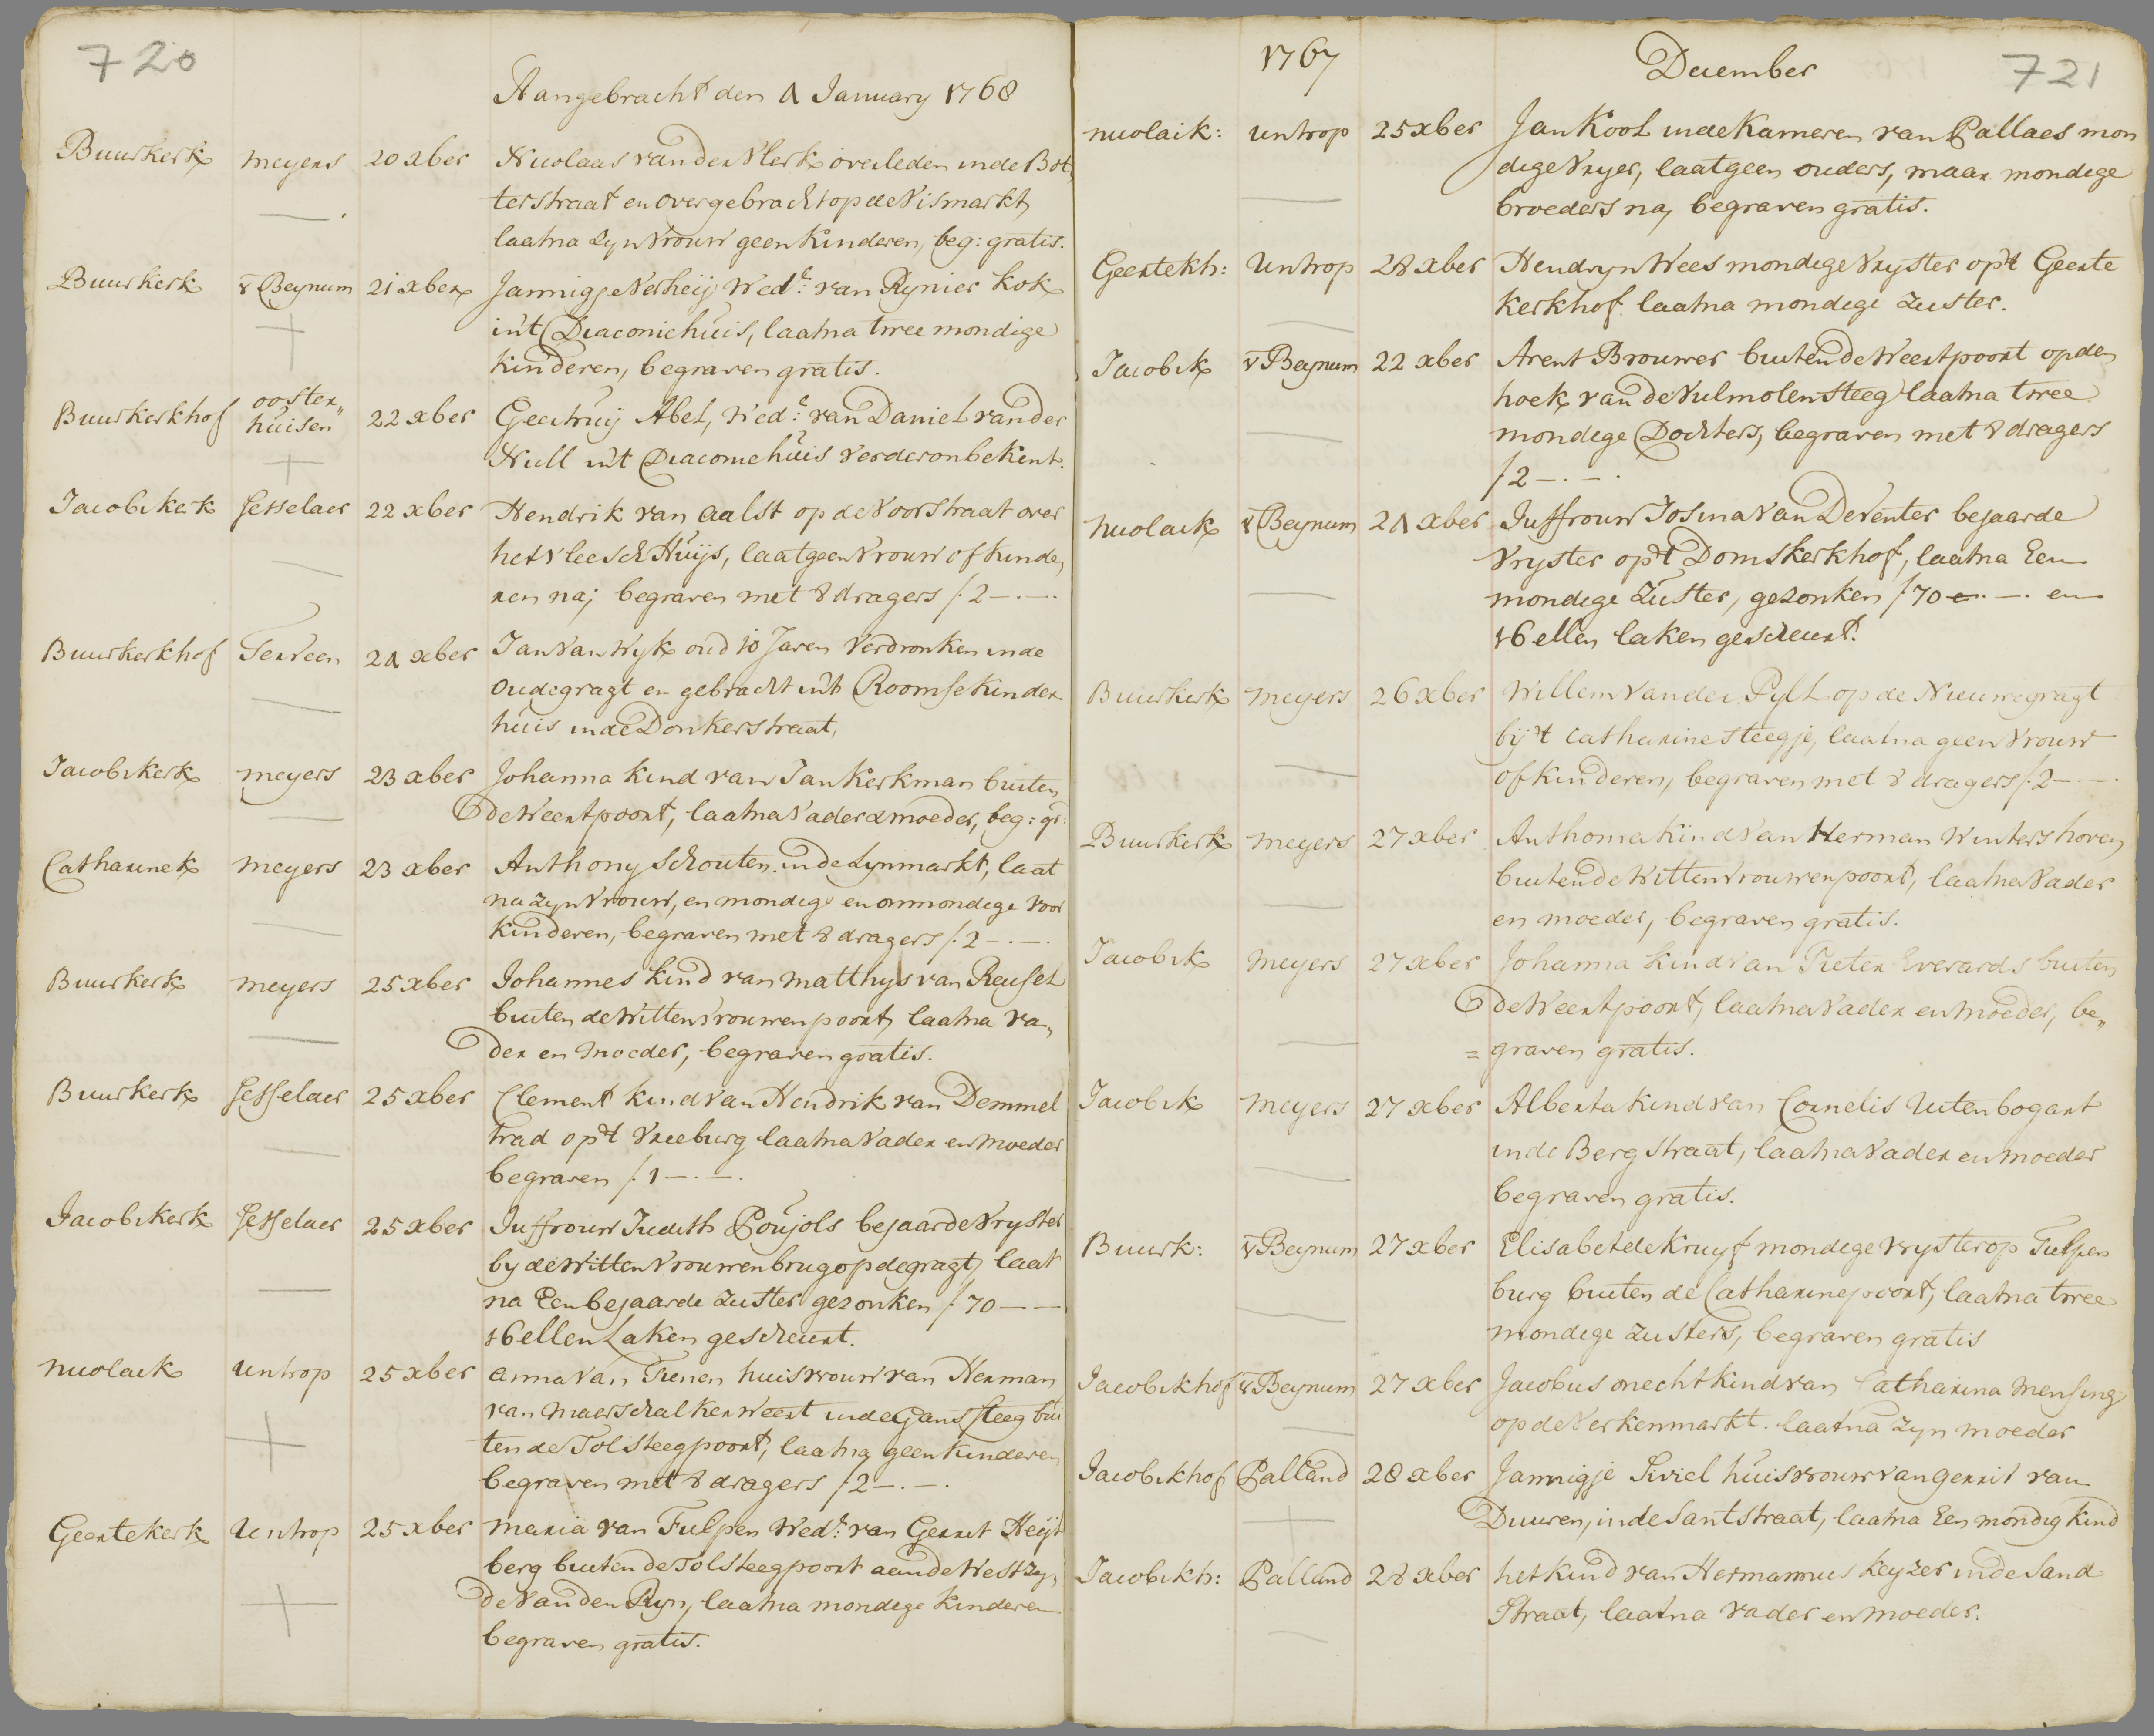 720
Aangebracht den 1 January 1768
Buurkerk meyers 20 xber Nicolaas van der Vlerk overleden in de Bot„
terstraat en overgebracht op de Vismarkt,
laat na zyn vrouw geen Kinderen, beg: gratis.
Buurkerk v Beynum 21 xber Jannigje Verheij Wed:e van Rynier Kok
in't Diaconiehuis, laat na twee mondige
Kinderen, begraven gratis.
Buurkerkhof ooster„
huisen 22 xber Geertruij Abel, Wed:e van Daniel van der
Null in't Diaconiehuis verder onbekent.
Iacobikerk Gesselaer 22 xber Hendrik van Aalst op de Voorstraat over
het vleeschHuijs, laat geen vrouw of Kinde„
ren na; begraven met 8 dragers f: 2 —.—
Buurkerkhof Terveen 21 xber Jan van Wyk oud 10 Jaren verdronken in de
oudegragt en gebracht in't Roomse Kinder
huis in de Donkerstraat,
Iacobikerk meyers 23 xber Johanna kind van Jan Kerkman buiten
de Weertpoort, laat na Vader & moeder, beg: gr:
Catharinek meyers 23 xber Anthony Schouten in de Lynmarkt, laat
na zyn vrouw, en mondige en onmondige voor
Kinderen, begraven met 8 dragers f: 2 —.—.
Buurkerk meyers 25 xber Johannes kind van Matthys van Reusel
buiten de Wittenvrouwenpoort, laat na va„
der en moeder, begraven gratis.
Buurkerk Gesselaer 25 xber Clement kind van Hendrik van Demmel
trad op't Vreeburg laat na Vader en moeder
begraven f: 1 —.—.
Iacobikerk Gesselaer 25 xber Juffrouw Judith Poujols bejaarde Vryster
by de Wittenvrouwenbrug op de gragt, laat
na Een bejaarde Zuster gezonken f: 70 — —
16 ellen Laken gescheurt.
nicolaik Untrop 25 xber Anna van Tienen huisvrouw van Herman
van Maerschalkerweert in de Ganssteeg bui
ten de Tolsteegpoort, laat na geen kinderen
begraven met 8 dragers f 2 —.—.
Geertekerk Untrop 25 xber Maria van Tulpen Wed:e van Gerrit Heijt
berg buiten de Tolsteegpoort aan de Westzy„
de van den Ryn, laat na mondige Kinderen
begraven gratis.
1767 December 721
nicolaik: untrop 25 xber Jan Kool in de Kameren van Pallaes mon
dige Vryer, laat geen ouders, maar mondige
broeders na, begraven gratis.
Geertekh: Untrop 28 xber Hendryn Wees mondige Vryster op't Geerte
kerkhof laat na mondige Zuster.
Iacobik v Beynum 22 xber Arent Brouwer buiten de Weertpoort op den
hoek van de Vulmolensteeg laat na twee
mondige Dochters, begraven met 8 dragers
f 2 —.—.
nicolaik v Beynum 21 xber Juffrouw Josina van Deventer bejaarde
Vryster op't Domskerkhof, laat na Een
mondige Zuster, gezonken f: 70 —.—. en
16 ellen laken gescheurt.
Buurkerk meyers 26 xber Willem van der Pyll op de Nieuwegragt
bij 't Catharine steegje, laat na geen vrouw
of Kinderen, begraven met 8 dragers f: 2 —.—.
Buurkerk meyers 27 xber Anthonia kind van Herman Wintershoven
buiten de Wittenvrouwenpoort, laat na Vader
en moeder, begraven gratis.
Iacobik meyers 27 xber Johanna kind van Pieter Everards buiten
de Weertpoort, laat na Vader en moeder, be„
= graven gratis.
Iacobik meyers 27 xber Alberta kind van Cornelis Uitenbogart
in de Bergstraat, laat na Vader en moeder
begraven gratis.
Buurk: v Beynum 27 xber Elisabet de Kruyf mondige vryster op Tulpen
burg buiten de Catharinepoort, laat na twee
mondige Zusters, begraven gratis
Iacobikhof v Beynum 27 xber Jacobus onecht kind van Catharina Mensing
op de Verkenmarkt. laat na zyn moeder
Iacobikhof Palland 28 xber Jannigje Piviel huisvrouw van Gerrit van
Duuren, in de Santstraat, laat na Een mondig kind
Iacobikh: Palland 28 xber het kind van Hermannus Keyzer in de Sand
straat, laat na vader en moeder.